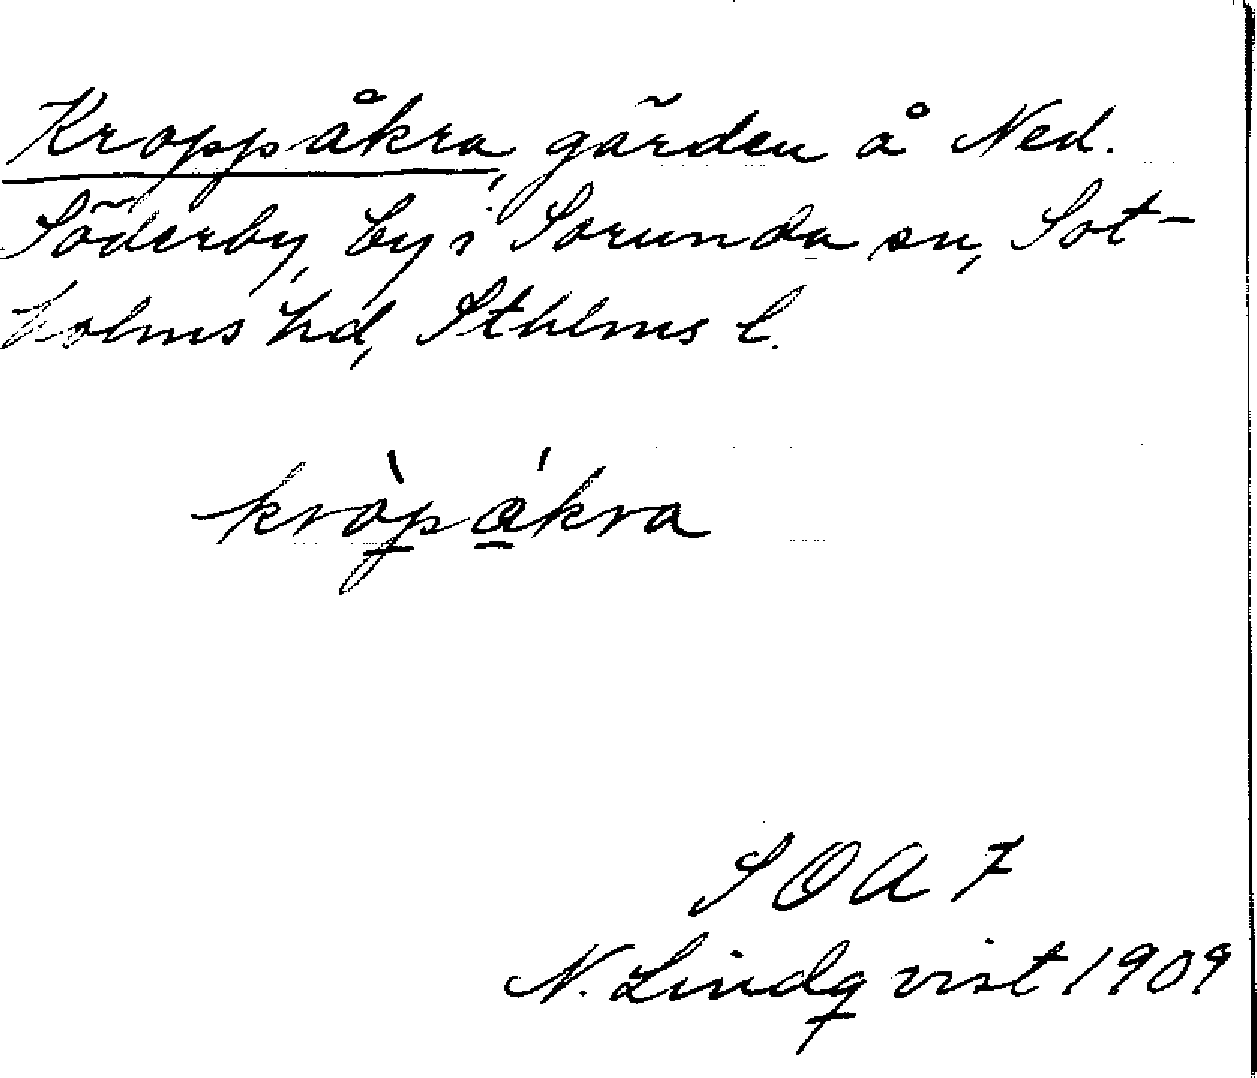 Kroppåkra, gärden å Ned.
Söderby, by i Sorunda sn, Sot-
holms hd, Sthlms l.
kròpákra
SOA 7
N. Lindqvist 1909